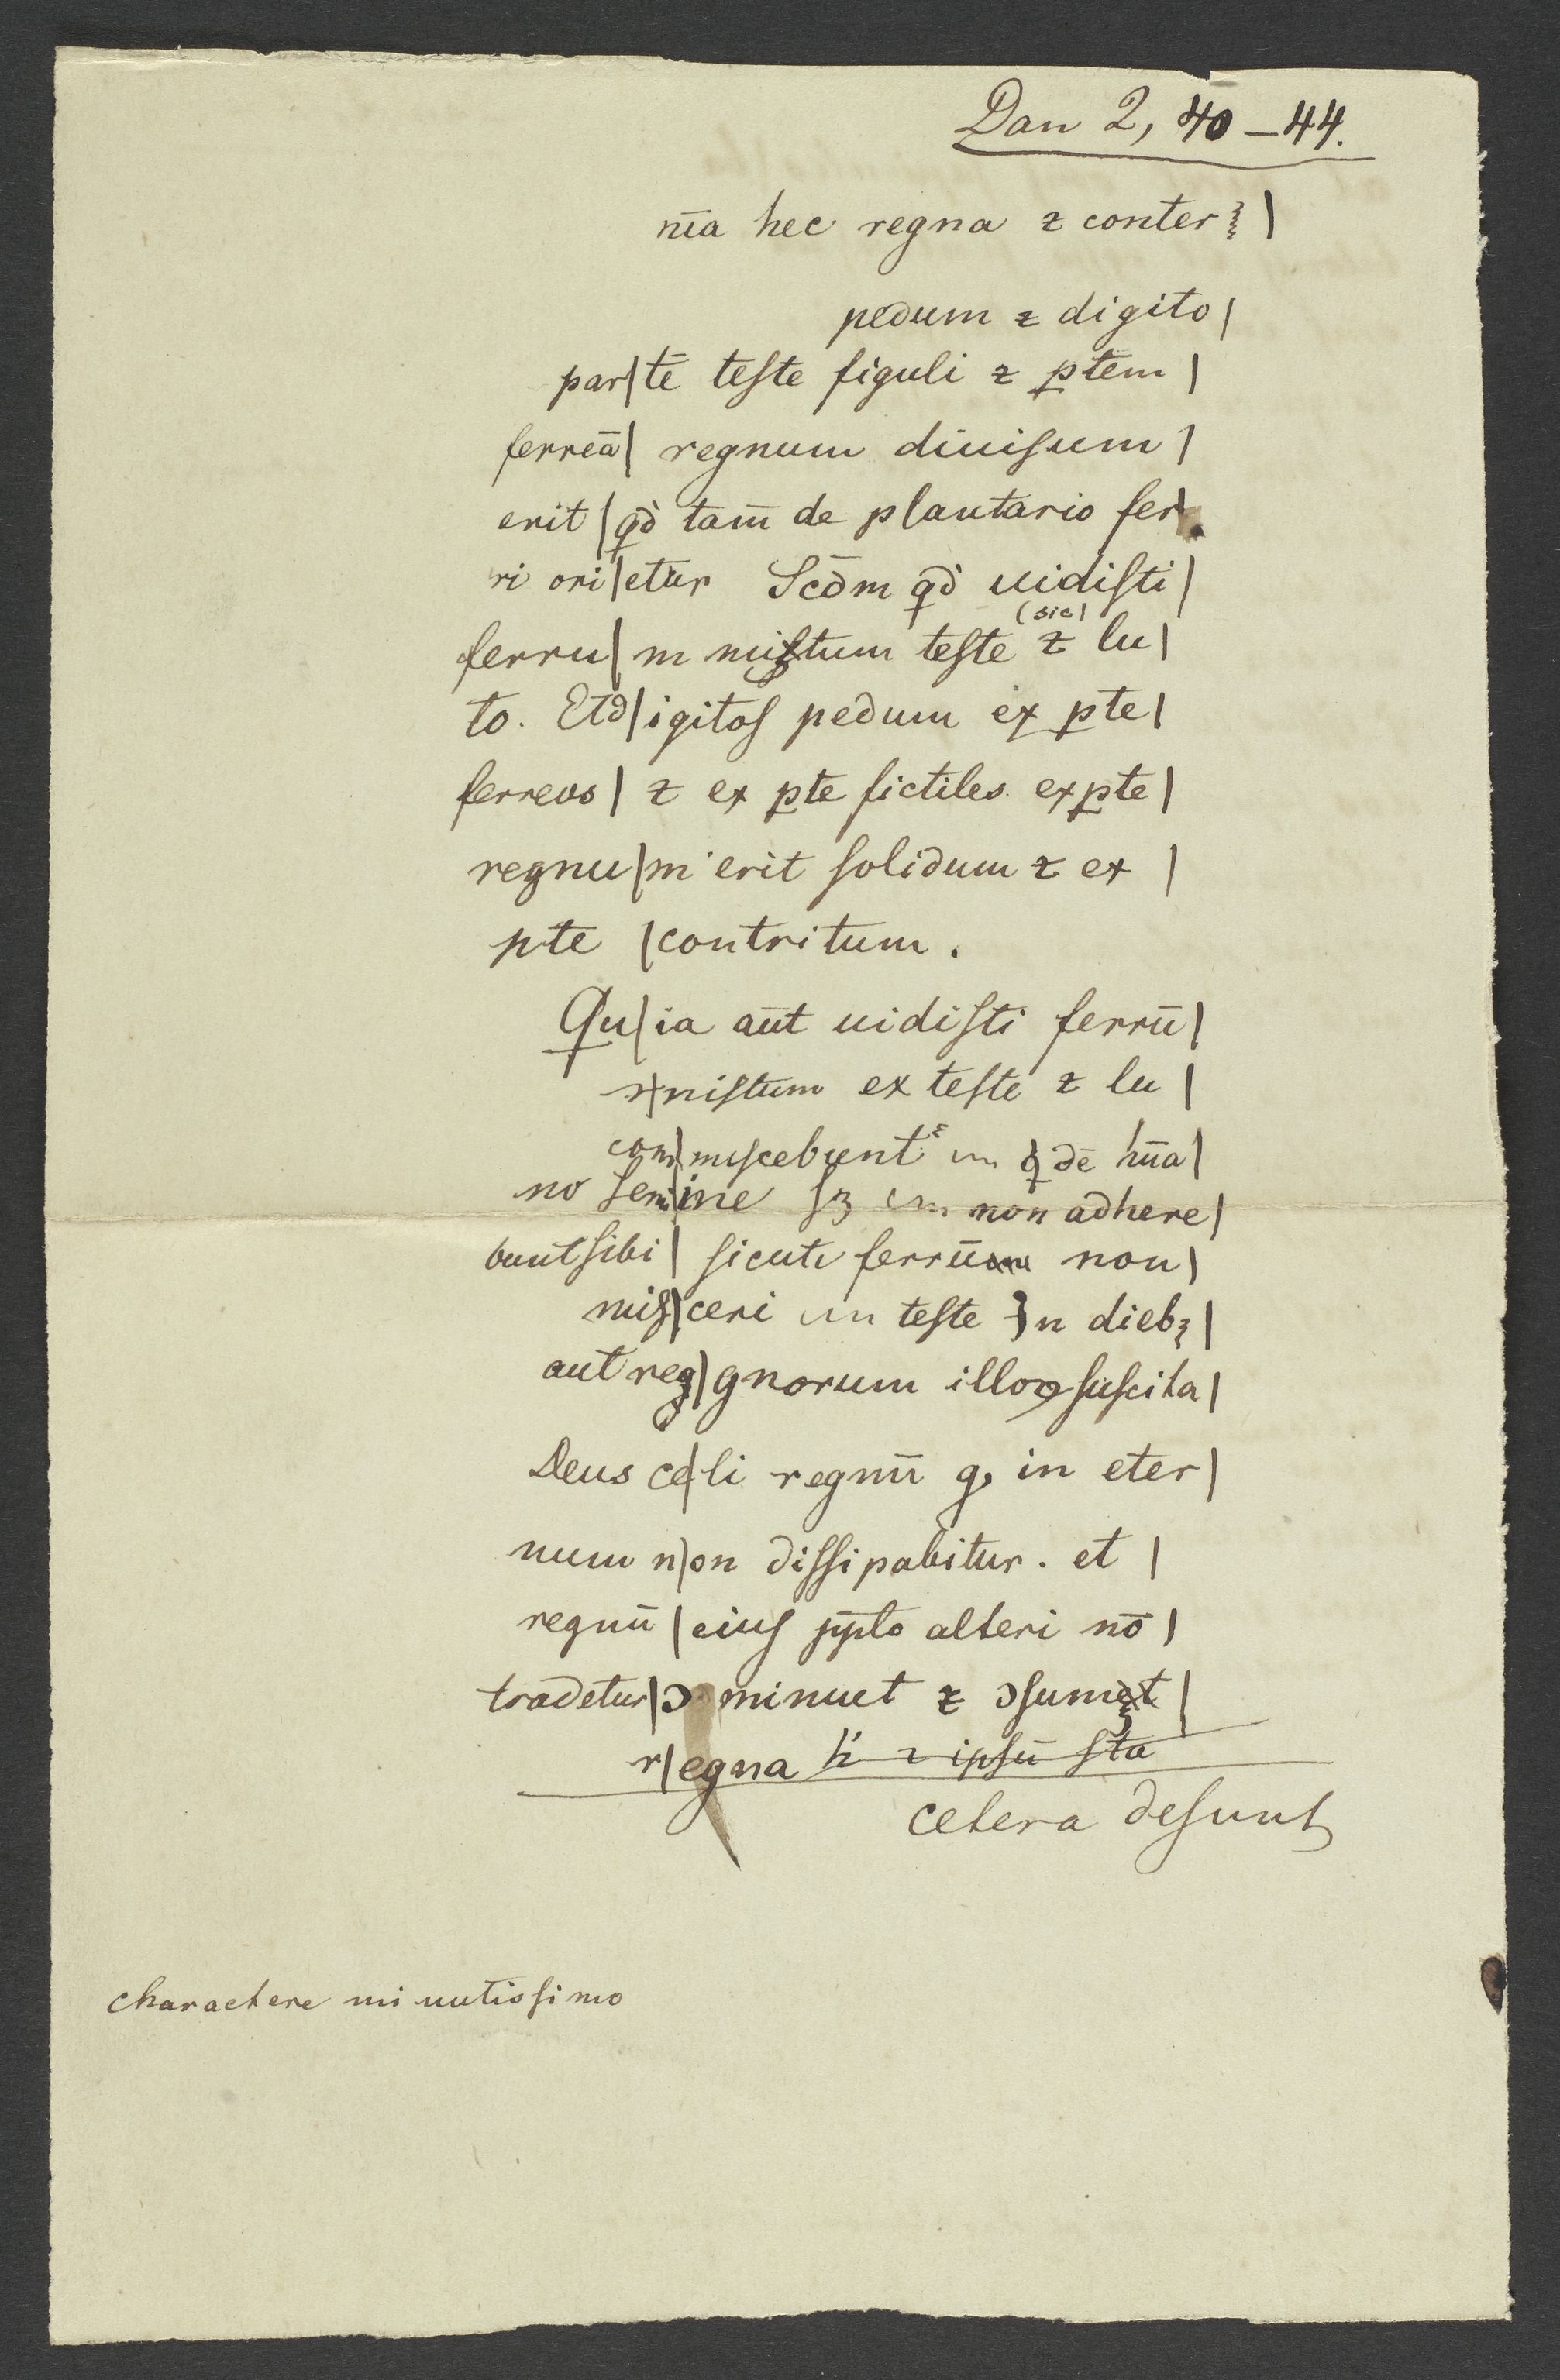 Dan 2, 40 – 44.
nīa hec regna ⁊ conter |
pedum ⁊ digito |
par|tē teſte figuli ⁊ ꝑtem |
ferreā| regnum diuiſum |
erit | qd̄ tam̄ de plantario fer|
ri ori|etur Scd̄m qd̄ uidiſti |
(sic)
ferru|m miſtum teſte ⁊ lu|
to. Etd|igitoſ pedum ex ꝑte |
ferreos | ⁊ ex ꝑte fictiles ex ꝑte |
regnu|m erit ſolidum ⁊ ex |
pte | contritum .
Qu|ia aūt uidiſti ferrū |
miſtum ex teſte ⁊ lu |
com|miſcebunt q dē hūa|
no ſem|ine ſꝫ non adhere|
buntſibi | ſicuti ferrū non |
miſ|ceri teſte In dieb; |
aut reg|gnorum illoꝝ ſuſcita |
Deus ce|li regnū q, in eter |
num n|on diſſipabitur . et |
regnū | eiuſ pplo alteri nō |
tradetur|ɔ minuet ⁊ ɔſumet |
r|egna h' ⁊ ipſū ſta
cetera deſunt
charactere minutiſſimo